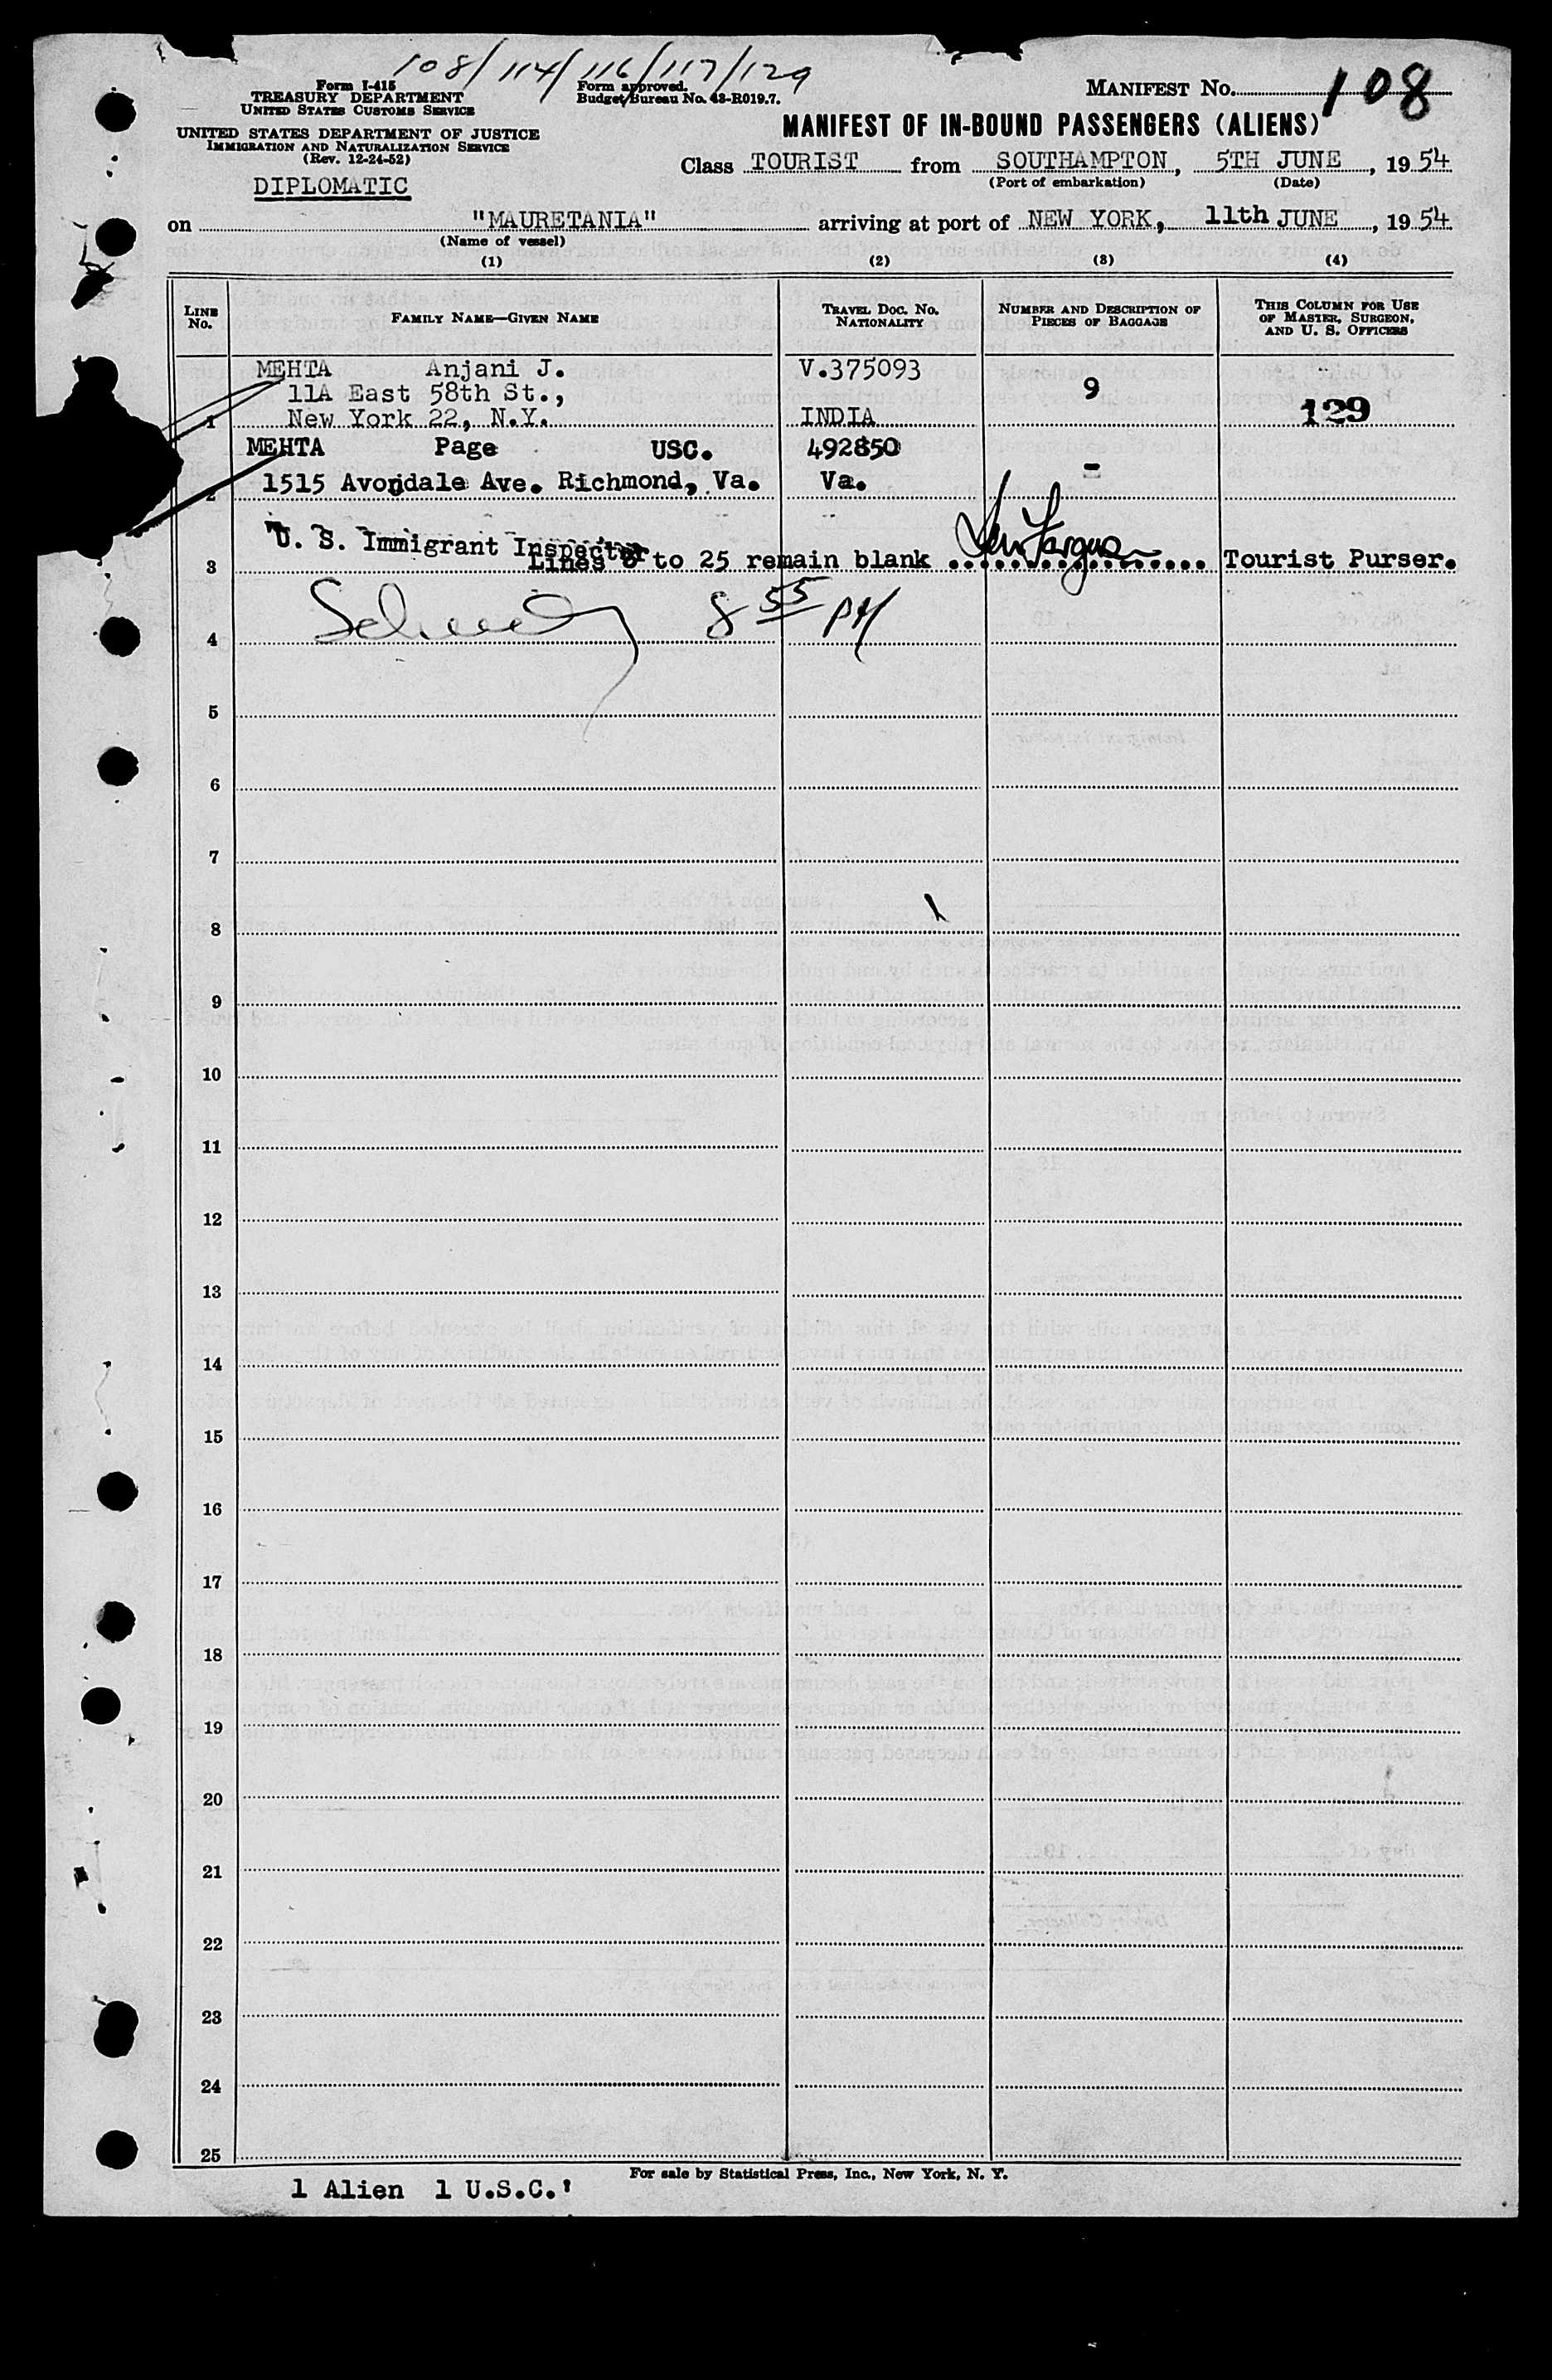 108/114/116/117/129
Form I-415
TREASURY DEPARTMENT
UNITED STATES CUSTOMS SERVICE
Form approved.
Budget Bureau No. 43-R019.7.
MANIFEST No. 108
UNITED STATES DEPARTMENT OF JUSTICE
IMMIGRATION AND NATURALIZATION SERVICE
(Rev. 12-24-52)
MANIFEST OF IN-BOUND PASSENGERS (ALIENS)
DIPLOMATIC
Class TOURIST from SOUTHAMPTON, 5TH JUNE, 1954
(Port of embarkation) (Date)
on "MAURETANIA" arriving at port of NEW YORK, 11th JUNE, 1954
(Name of vessel)
(1) (2) (3) (4)
LINE No.
FAMILY NAME—GIVEN NAME
TRAVEL DOC. NO. NATIONALITY
NUMBER AND DESCRIPTION OF PIECES OF BAGGAGE
THIS COLUMN FOR USE OF MASTER, SURGEON, AND U. S. OFFICERS
MEHTA Anjani J. V.375093
11A East 58th St., 9
1 New York 22, N.Y. INDIA 129
MEHTA Page USC. 492850
2 1515 Avondale Ave. Richmond, Va. Va. -
U. S. Immigrant Inspector
3 Lines 3 to 25 remain blank Tourist Purser.
4 8 55 PM
5
6
7
8
9
10
11
12
13
14
15
16
17
18
19
20
21
22
23
24
25
For sale by Statistical Press, Inc., New York, N. Y.
1 Alien 1 U.S.C.'